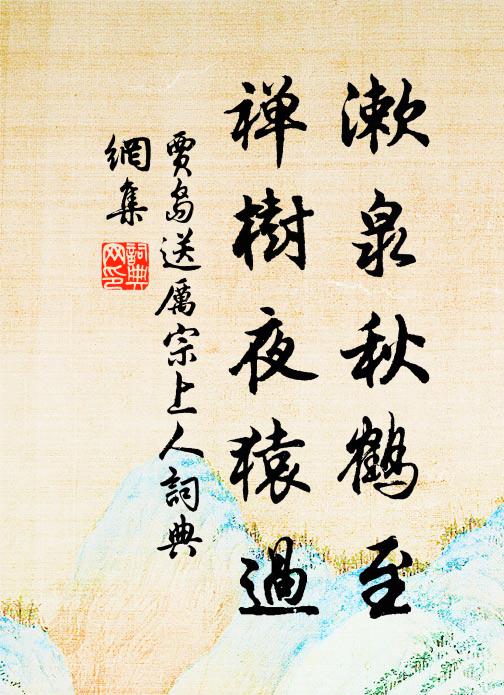 漱泉秋鹤至
禅樹夜猿過
賈島送厲宗上人詞典
網集
詞典
网印